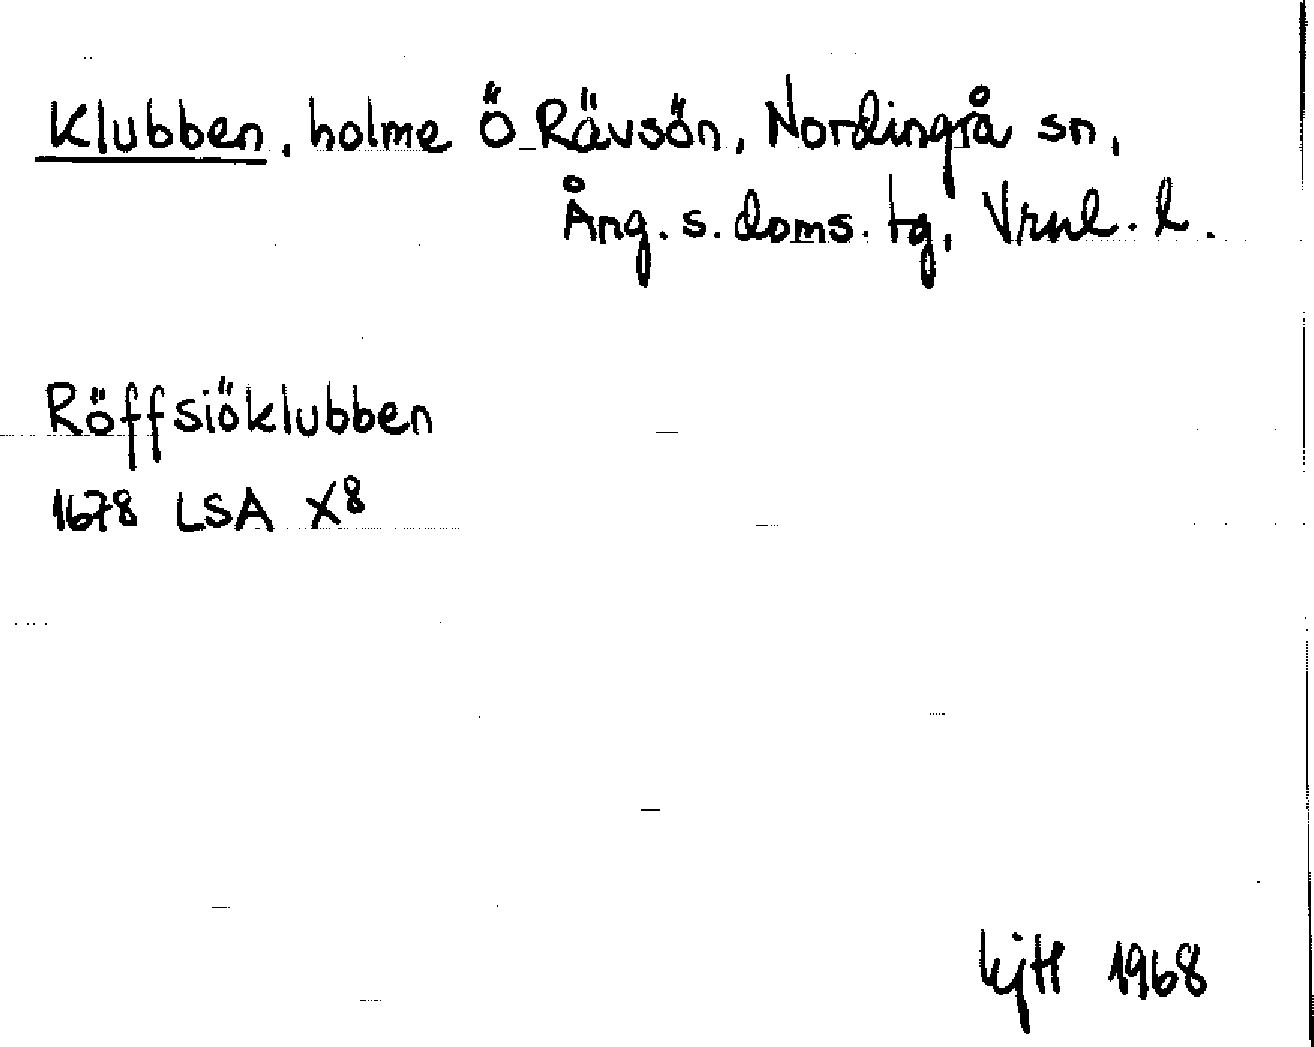 Klubben, holme Ö Rävsön, Nordingrå sn,
Ång. s. doms. tg, Vrnl. l.
Röffsiöklubben
1678 LSA X⁸
KjH 1968